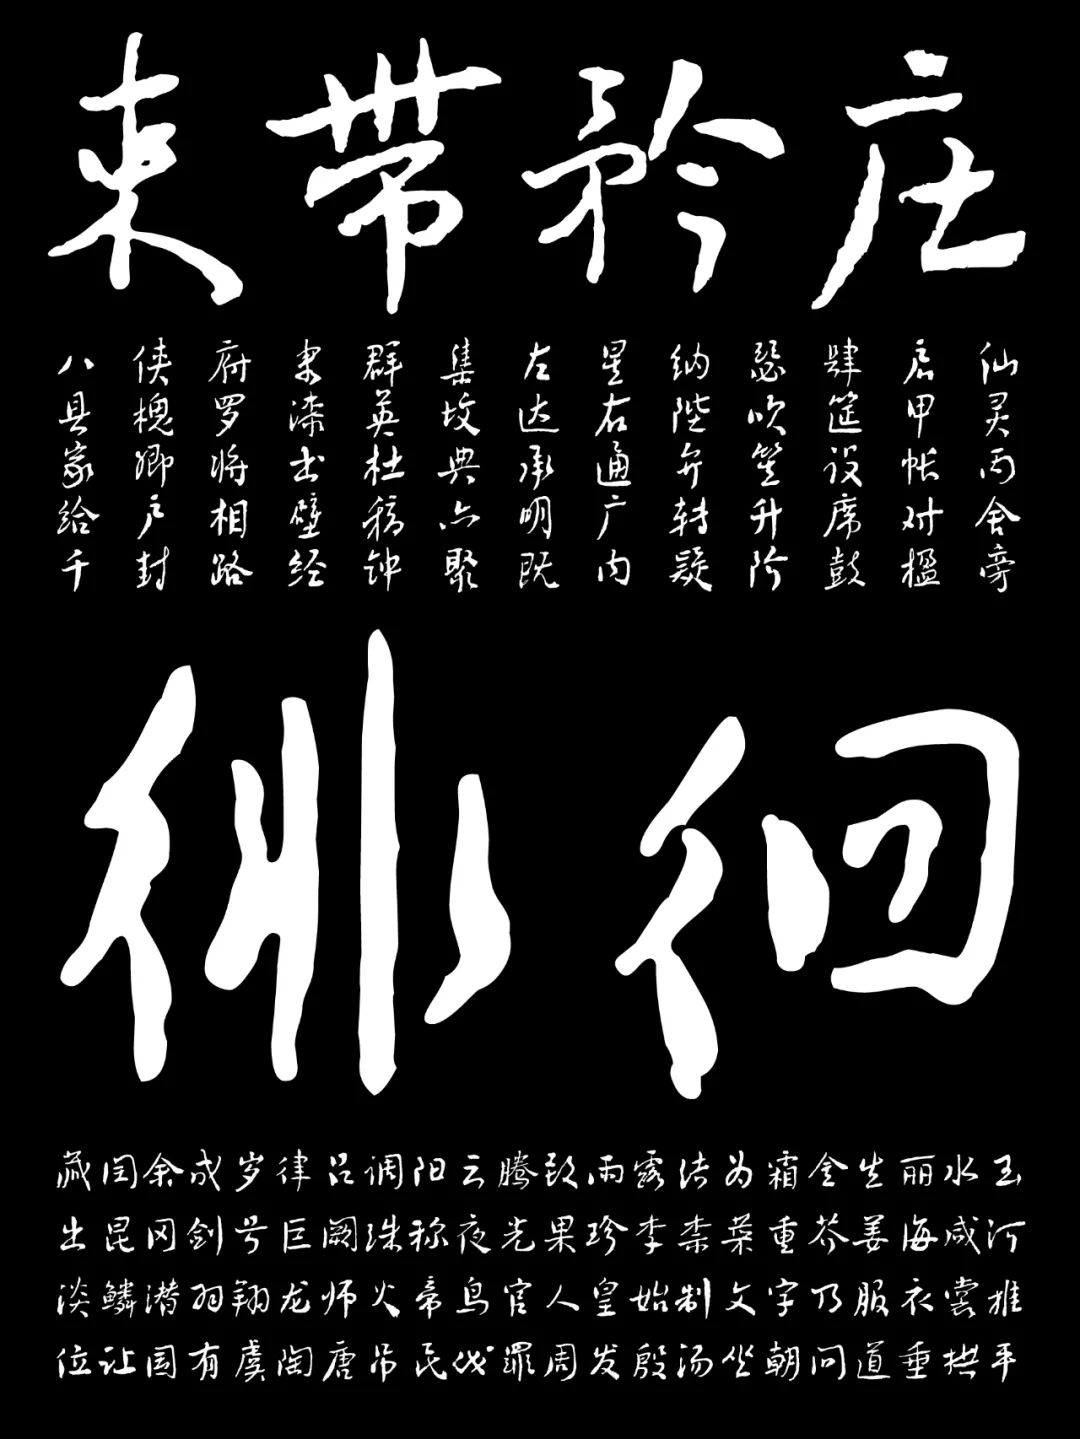 束带矜庄
仙灵丙舍旁
启甲帐对楹
肆筵设席鼓
瑟吹笙升阶
纳陛弁转疑
星右通广内
左达承明既
集坟典亦聚
群英杜稿钟
隶漆书壁经
府罗将相路
侠槐卿户封
八县家给千
徘徊
藏闰余成岁律吕调阳云腾致雨露结为霜金生丽水玉
出昆冈剑号巨阙珠称夜光果珍李柰菜重芥姜海咸河
淡鳞潜羽翔龙师火帝鸟官人皇始制文字乃服衣裳推
位让国有虞陶唐吊民伐罪周发殷汤坐朝问道垂拱平